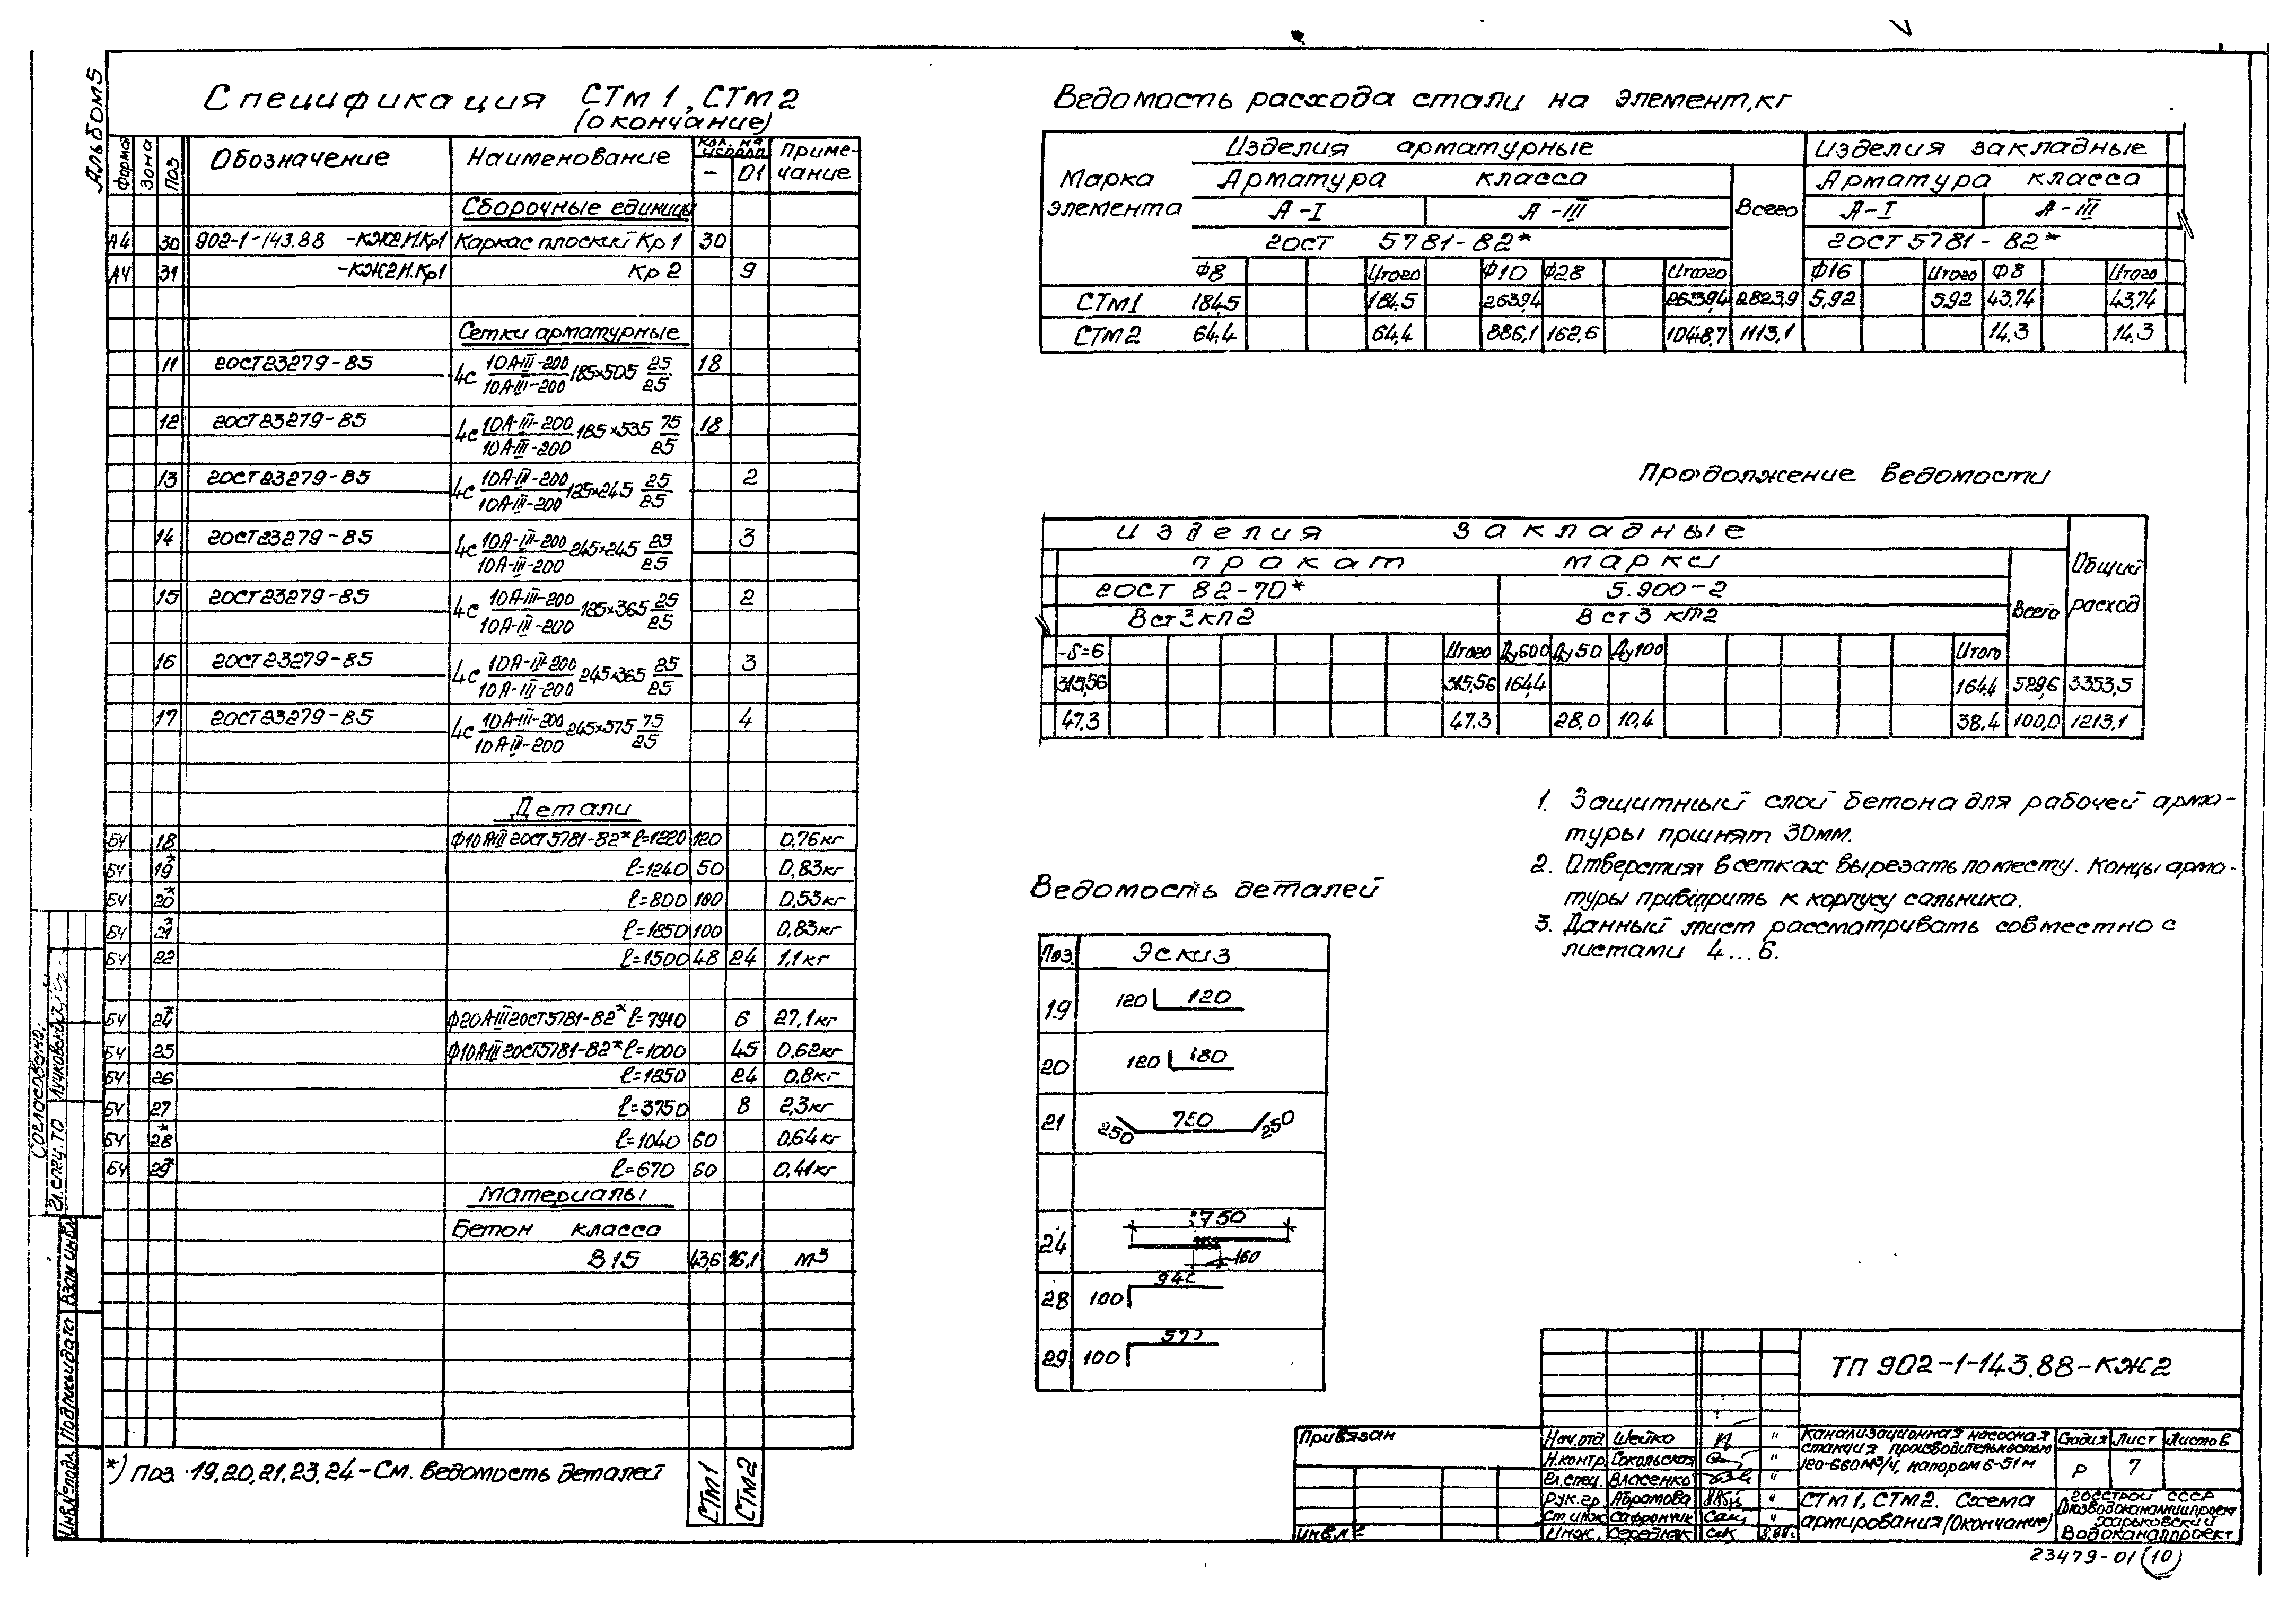 Альбом 5
Спецификация СТм 1, СТм 2
(окончание)
Форма Зона Поз Обозначение Наименование Кол. на исполн. Приме-
– 01 чание
Сборочные единицы
А4 30 902-1-143.88 -КЖ2И.Кр1 Каркас плоский Кр 1 30
А4 31 -КЖ2И.Кр1 Кр 2 9
Сетки арматурные
11 ГОСТ 23279-85 4с 10А-III-200/10А-III-200 185×505 25/25 18
12 ГОСТ 23279-85 4с 10А-III-200/10А-III-200 185×535 75/25 18
13 ГОСТ 23279-85 4с 10А-III-200/10А-III-200 185×245 25/25 2
14 ГОСТ 23279-85 4с 10А-III-200/10А-III-200 245×245 25/25 3
15 ГОСТ 23279-85 4с 10А-III-200/10А-III-200 185×365 25/25 2
16 ГОСТ 23279-85 4с 10А-III-200/10А-III-200 245×365 25/25 3
17 ГОСТ 23279-85 4с 10А-III-200/10А-III-200 245×575 75/25 4
Детали
БЧ 18 Ф10АIII ГОСТ 5781-82* ℓ=1220 120 0,76кг
БЧ 19* ℓ=1240 50 0,83кг
БЧ 20* ℓ=800 100 0,53кг
БЧ 21* ℓ=1850 100 0,83кг
БЧ 22 ℓ=1500 48 24 1,1кг
БЧ 24* Ф20АIII ГОСТ 5781-82* ℓ=7910 6 27,1кг
БЧ 25 Ф10АIII ГОСТ 5781-82* ℓ=1000 45 0,62кг
БЧ 26 ℓ=1850 24 0,8кг
БЧ 27 ℓ=3750 8 2,3кг
БЧ 28* ℓ=1040 60 0,64кг
БЧ 29* ℓ=670 60 0,41кг
Материалы
Бетон класса
В15 43,6 16,1 м3
*) Поз. 19,20,21,23,24 – См. ведомость деталей
СТм1 СТм2
Ведомость расхода стали на элемент, кг
Марка элемента Изделия арматурные Изделия закладные
Арматура класса Всего Арматура класса
А-I А-III А-I А-III
ГОСТ 5781-82* ГОСТ 5781-82*
Ф8 Итого Ф10 Ф28 Итого Ф16 Итого Ф8 Итого
СТм1 184,5 184,5 2639,4 2639,4 2823,9 5,92 5,92 43,74 43,74
СТм2 64,4 64,4 886,1 162,6 1048,7 1113,1 14,3 14,3
Продолжение ведомости
Изделия закладные Общий расход
прокат марки Всего
ГОСТ 82-70* 5.900-2
Вст3кп2 Вст3 кп2
-δ=6 Итого Ду600 Ду50 Ду100 Итого
315,56 315,56 164,4 164,4 529,6 3353,5
47,3 47.3 28.0 10,4 38,4 100,0 1213,1
1. Защитный слой бетона для рабочей арма-
туры принят 30мм.
2. Отверстия в сетках вырезать по месту. Концы арма-
туры приварить к корпусу сальника.
3. Данный лист рассматривать совместно с
листами 4...6.
Ведомость деталей
Поз. Эскиз
19 120 120
20 120 180
21 250 750 250
24 750 160
28 100 940
29 100
Согласовано:
Гл. спец. ТО Лучковский
Инв.№ подл. Подпись и дата Взам инв.№
Привязан
Инв.№
ТП 902-1-143.88-КЖ2
Нач.отд Шейко
Н.контр. Сокольская
Гл.спец. Власенко
Рук.гр. Абрамова
Ст.инж. Сафрончик
Инж. Середняк 8.88г.
Канализационная насосная
станция производительностью
120-660м3/ч, напором 6-51м
Стадия Лист Листов
Р 7
СТм 1, СТм 2. Схема
армирования (окончание)
Госстрой СССР
Союзводоканалниипроект
Харьковский
Водоканалпроект
23479-01 (10)